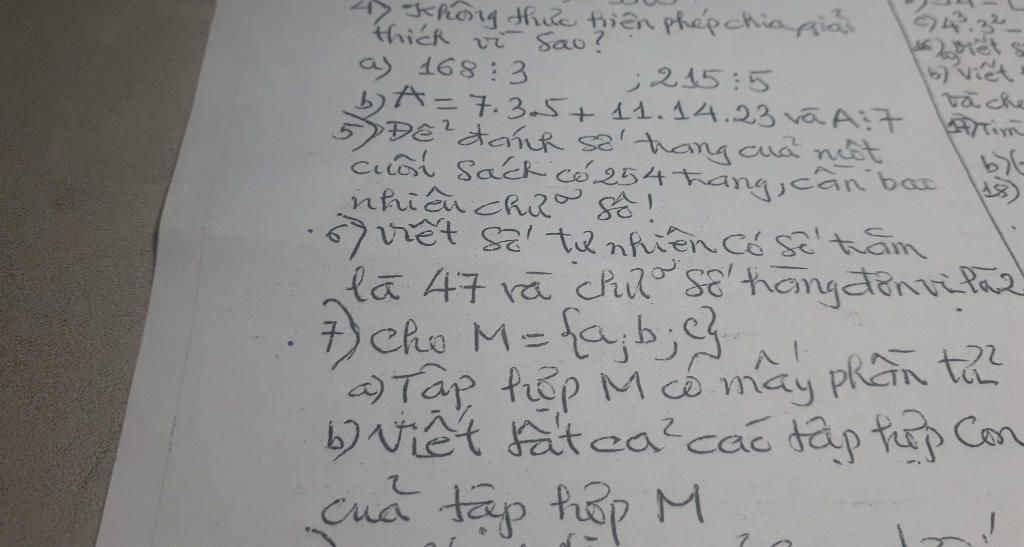 4) Không thực hiện phép chia, giải
thích vì sao?
a) 168 : 3 ; 215 : 5
b) A = 7.3.5 + 11.14.23 và A : 7
5) Để đánh số trang cuả một
cuốn sách có 254 trang, cần bao
nhiêu chữ số!
6) Viết số tự nhiên có số trăm
là 47 và chữ số hàng đơn vị là 2
7) Cho M = {a; b; c}
a) Tập hợp M có mấy phần tử
b) Viết tất cả các tập hợp con
cuả tập hợp M
c) 4³.3² -
16) Viết s
b) Viết
và che
17) Tìm
b) (
18)